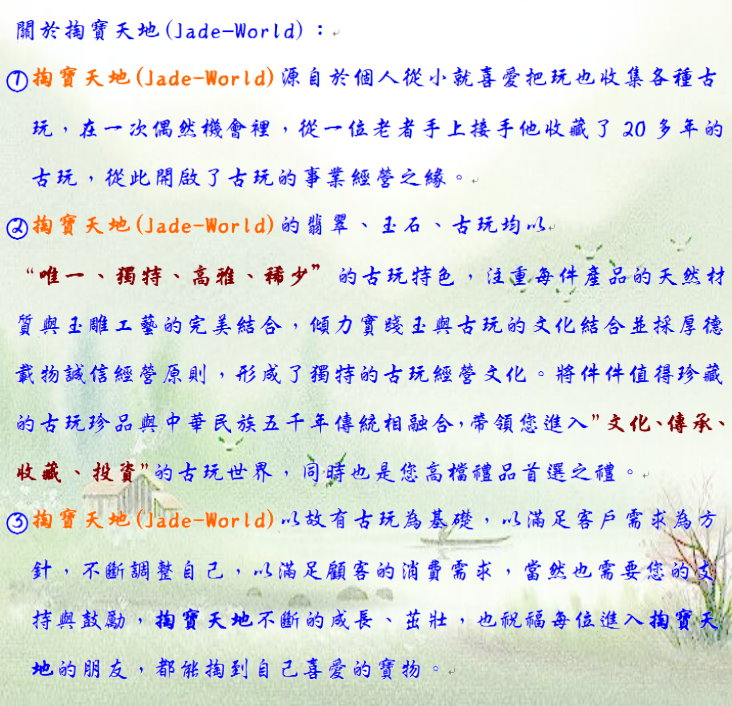 關於掏寶天地(Jade-World)：
①掏寶天地(Jade-World)源自於個人從小就喜愛把玩也收集各種古
玩，在一次偶然機會裡，從一位老者手上接手他收藏了 20 多年的
古玩，從此開啟了古玩的事業經營之緣。
②掏寶天地(Jade-World)的翡翠、玉石、古玩均以
“唯一、獨特、高雅、稀少”的古玩特色，注重每件產品的天然材
質與玉雕工藝的完美結合，傾力實踐玉與古玩的文化結合並採厚德
載物誠信經營原則，形成了獨特的古玩經營文化。將件件值得珍藏
的古玩珍品與中華民族五千年傳統相融合,帶領您進入”文化、傳承、
收藏、投資”的古玩世界，同時也是您高檔禮品首選之禮。
③掏寶天地(Jade-World)以故有古玩為基礎，以滿足客戶需求為方
針，不斷調整自己，以滿足顧客的消費需求，當然也需要您的支
持與鼓勵，掏寶天地不斷的成長、茁壯，也祝福每位進入掏寶天
地的朋友，都能掏到自己喜愛的寶物。